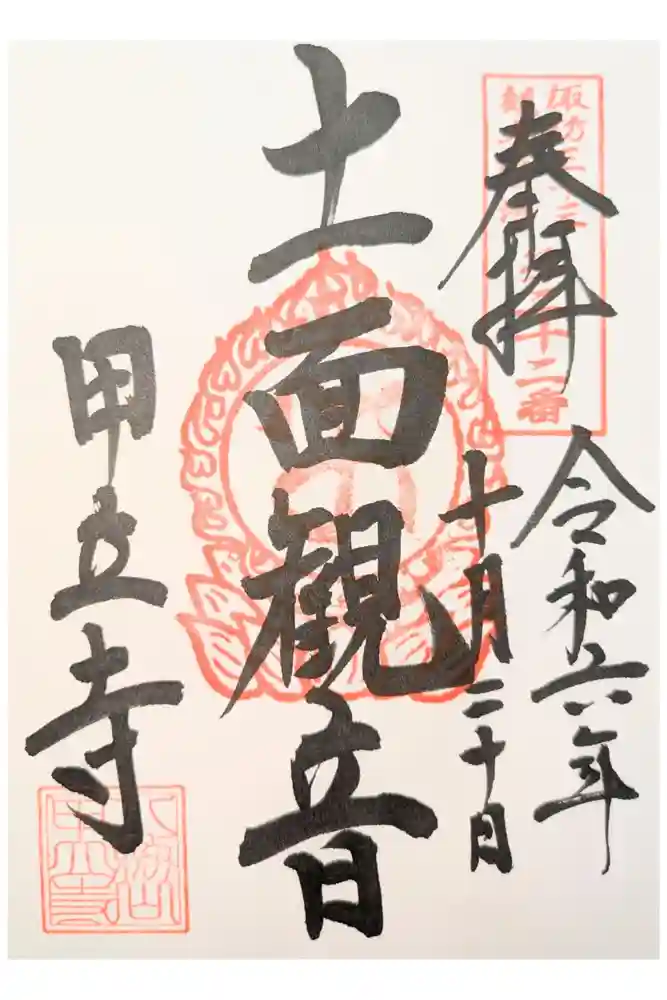 奉拝
十二番
令和六年
十月二十日
十一面觀音
甲立寺